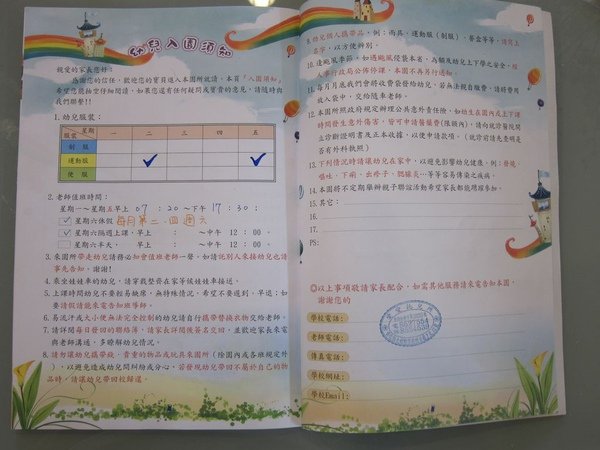 幼兒入園須知
親愛的家長您好：
感謝您的信任，歡迎您的寶貝進入本園所就讀，本頁「入園須知」
希望您能抽空仔細閱讀，如果您還有任何疑問或寶貴的意見，請隨時與
我們聯繫!!
1. 幼兒服裝：
服裝 星期 一 二 三 四 五
制 服
運動服 ✓ ✓
便 服
2. 老師值班時間：
星期一～星期五早上 07：20～下午 17：30；
✓星期六休假 每月第二、四週六
✓星期六隔週上課，早上 ： ～中午 12：00。
星期六半天， 早上 ： ～中午 12：00。
3. 來園所帶走幼兒請務必知會值班老師一聲，如請託別人來接幼兒也請
事先告知，謝謝!
4. 乘坐娃娃車的幼兒，請穿戴整齊在家等候娃娃車接送。
5. 上課時間幼兒不要輕易缺席，無特殊情況，希望不要遲到、早退；如
要請假請能來電告知班導師。
6. 易流汗或大小便無法完全控制的幼兒請自行攜帶替換衣物交給老師。
7. 請詳閱每日發回的聯絡簿，請家長詳閱後簽名交回，並歡迎家長來電
與老師溝通，多瞭解幼兒情況。
8. 請勿讓幼兒攜帶錢、貴重的物品或玩具來園所（繪圖內或各班規定外
），以避免造成幼兒間糾紛或分心，若發現幼兒帶回不屬於自己的物
品時，請讓幼兒帶回校歸還。
9. 幼兒個人攜帶品，例：雨具、運動服（制服）、餐盒等等，請寫上
名字，以方便辨別。
10. 逢颱風季節，如遇颱風侵襲本省，為顧及幼兒上下學之安全，經
人事行政局公佈停課，本園不再另行通知。
11. 每月月底我們會將收費袋發給幼兒，若無法親自繳費，請將費用
放入袋中，交給隨車老師。
12. 本園所按政府規定辦理公共意外責任險，如幼生在園內或上下課
時間發生意外傷害，皆可申請醫藥費(限額內)。請向就診醫院開
立診斷證明書及正本收據，以便申請款項。（就診前請先查明是
否有外科執照）
13. 下列情況時請讓幼兒在家中，以避免影響幼兒健康，例：發燒、
嘔吐、下痢、出疹子、腮腺炎…等等容易傳染之疾病。
14. 本園將不定期舉辦親子聯誼活動希望家長都能踴躍參加。
15. 其它：
16.
17.
PS:
◎以上事項敬請家長配合，如需其他服務請來電告知本園，
謝謝您的
學校電話：
老師電話：
傳真電話：
學校網址：
學校Email：